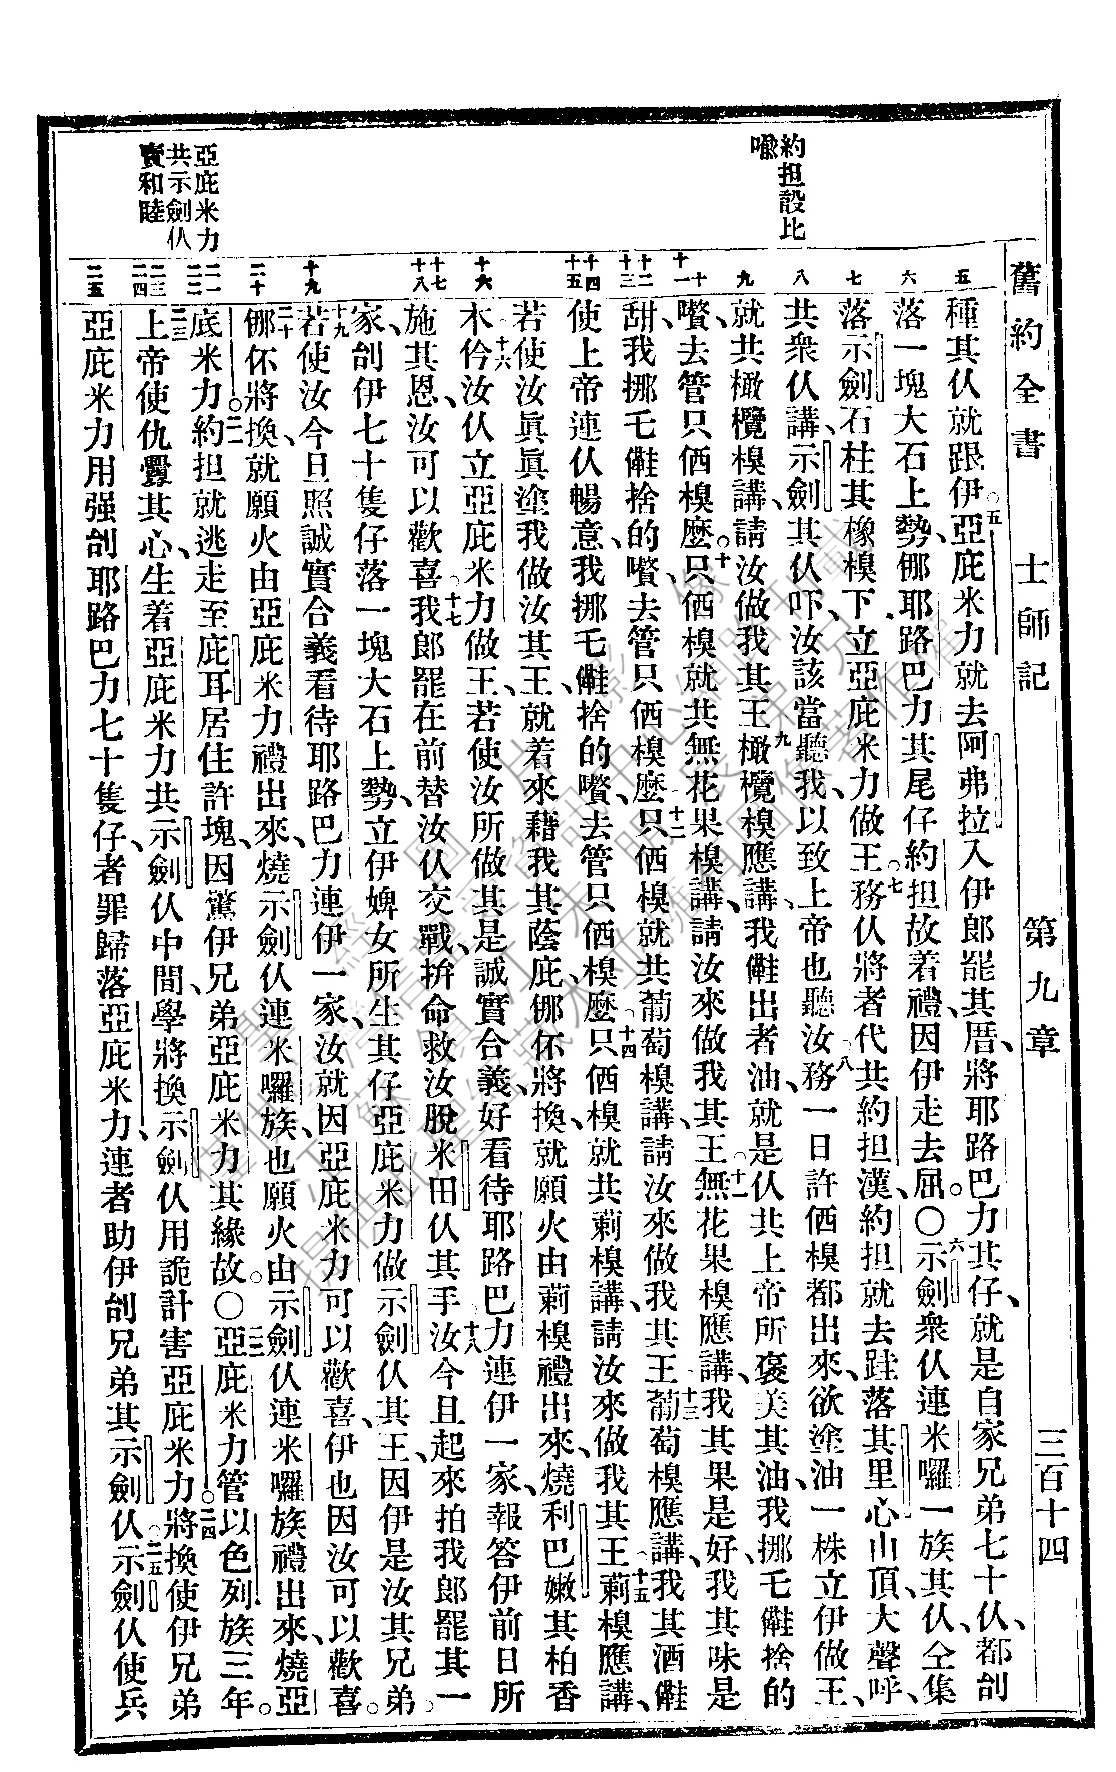 舊約全書 士師記 第九章 三百十四
約担設比
喩
亞庇米力
共示劍仫
賣和睦
五 六 七 八 九 十 十一 十二 十三 十四 十五 十六 十七 十八 十九 二十 二一 二二 二三 二四 二五
種其仫就跟伊。五亞庇米力就去阿弗拉入伊郎罷其厝、將耶路巴力其仔、就是自家兄弟七十仫、都刣
落一塊大石上勢、𠊎耶路巴力其尾仔約担故着禮因伊走去屈。〇六示劍衆仫連米囉一族其仫仝集
落示劍石柱其橡模下、立亞庇米力做王。七務仫將者代共約担漢、約担就去跬落其里心山頂、大聲呼、
共衆仫講、示劍其仫吓、汝該當聽我、以致上帝也聽汝。八務一日許仾模都出來、欲塗油一株立伊做王、
就共橄欖模講、請汝做我其王。九橄欖模應講、我𣍐出者油、就是仫共上帝所褒美其油、我挪乇𣍐捨的
噆去管只仾模麼。十只仾模就共無花果模講、請汝來做我其王。十一無花果模應講、我其果是好、我其味是
甜、我挪乇𣍐捨的噆去管只仾模麼。十二只仾模就共葡萄模講、請汝來做我其王。十三葡萄模應講、我其酒𣍐
使上帝連仫暢意、我挪乇𣍐捨的噆去管只仾模麼。十四只仾模就共莿模講、請汝來做我其王。十五莿模應講、
若使汝眞眞塗我做汝其王、就着來藉我其蔭庇、𠊎伓將換、就願火由莿模禮出來、燒利巴嫩其柏香
木。十六仱汝仫立亞庇米力做王、若使汝所做其是誠實合義、好看待耶路巴力連伊一家、報答伊前日所
施其恩、汝可以歡喜。十七我郎罷在前替汝仫交戰、拚命救汝脫米田仫其手。十八汝今旦起來拍我郎罷其一
家、刣伊七十隻仔落一塊大石上勢、立伊婢女所生其仔亞庇米力做示劍仫其王、因伊是汝其兄弟。
十九若使汝今旦照誠實合義看待耶路巴力連伊一家、汝就因亞庇米力可以歡喜、伊也因汝可以歡喜。
二十𠊎伓將換、就願火由亞庇米力禮出來、燒示劍仫連米囉族、也願火由示劍仫連米囉族禮出來、燒亞
庇米力。二一約担就逃走至庇耳居住許塊、因驚伊兄弟亞庇米力其緣故。〇二二亞庇米力管以色列族三年。
二三上帝使仇釁其心、生着亞庇米力共示劍仫中間、學將換示劍仫用詭計害亞庇米力。二四將換使伊兄弟
亞庇米力用强刣耶路巴力七十隻仔、者罪歸落亞庇米力、連者助伊刣兄弟其示劍仫。二五示劍仫使兵